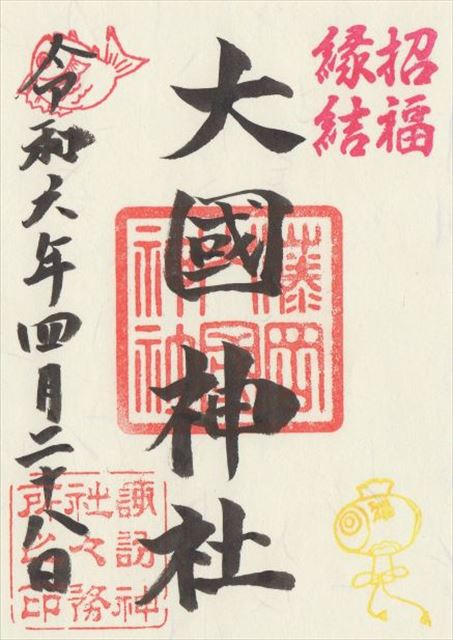 招福
縁結
大國神社
令和六年四月二十八日
諏訪神
社々務
所之印
福